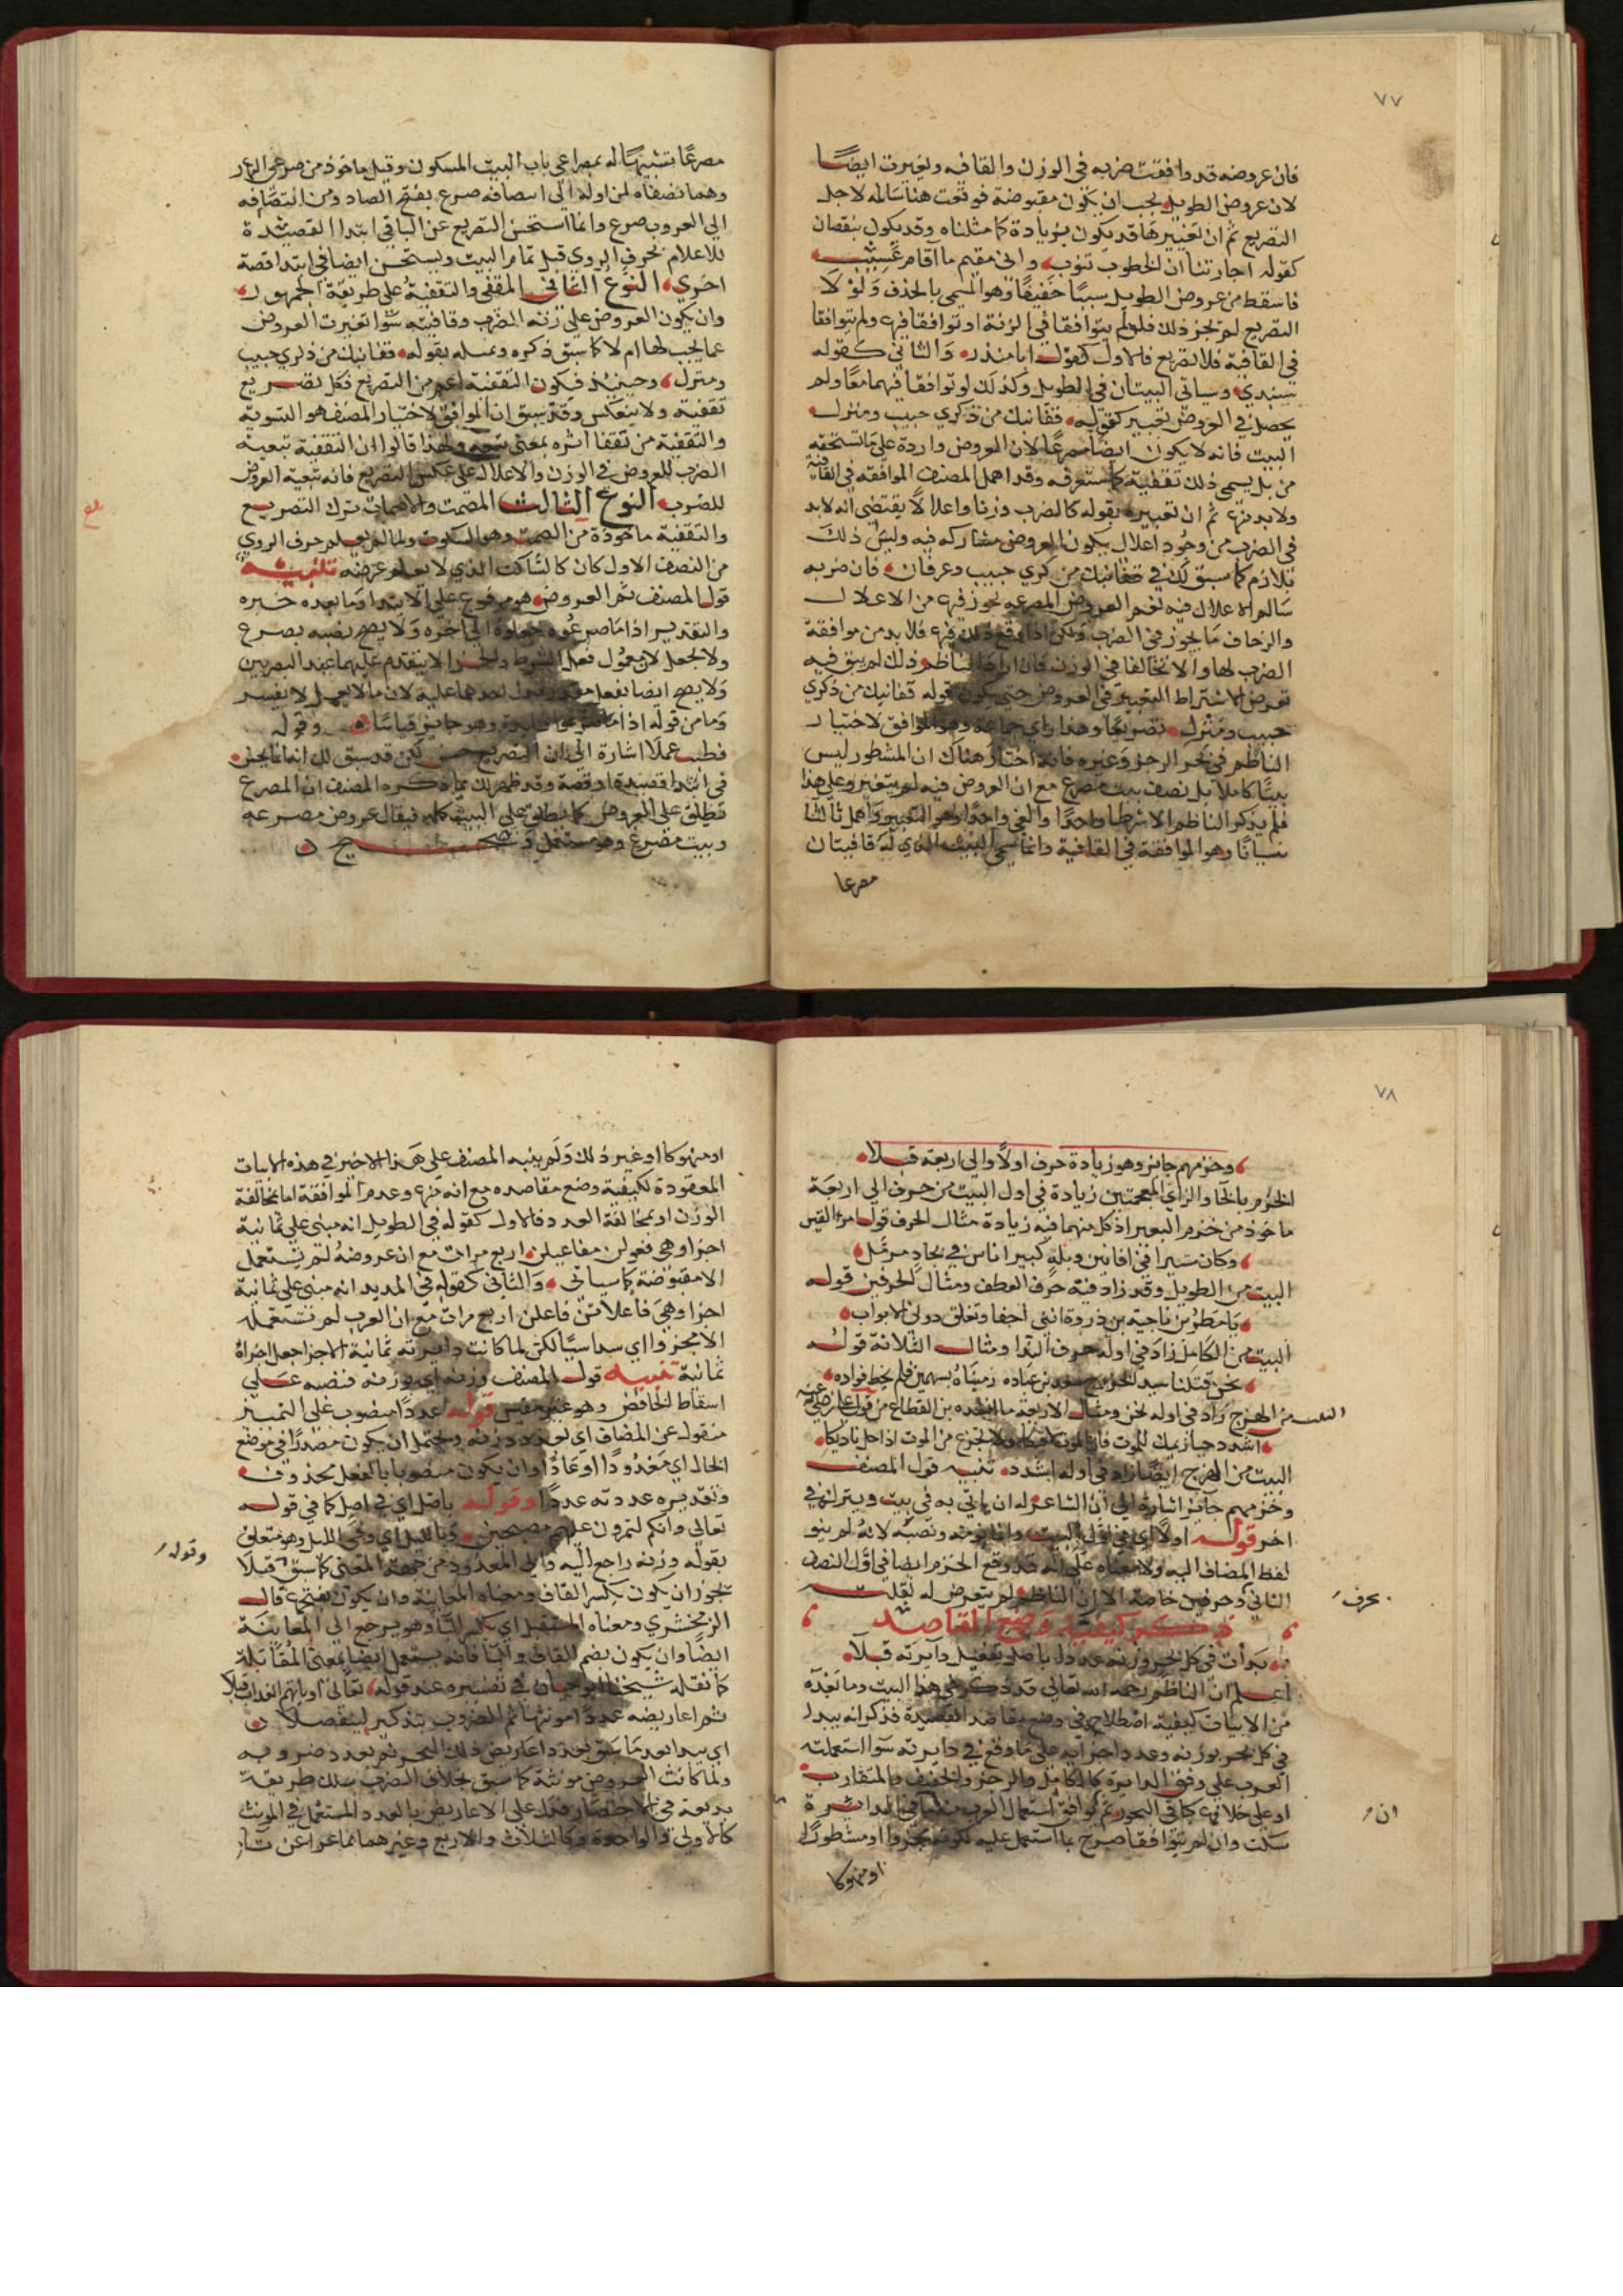 ٧٧
فان عروضه قد وافقت ضربه في الوزن والقافيه وتغيرت ايضًا
لان عروض الطويل يجب ان يكون مقبوضة فوقعت هنا سالمه لاجل
التصريع ثم ان تغييرها قد يكون بزيادة كما مثلناه وقد يكون بنقصان
كقوله اجارتنا ان الخطوب تنوب واني مقيم ما اقام عسيب
فاسقط من عروض الطويل سببًا خفيفًا وهو المسمى بالحذف ولولا
التصريع لم يجز ذلك فلو لم يتوافقا في الزنة او توافقا فيه ولم يتوافقا
في القافية فلا تصريع فالاول كقوله ابا منذر والثاني كقوله
ستبدي وسياتي البيتان في الطويل وكذلك لو توافقا فيهما معًا ولم
يحصل في العروض تغيير كقوله قفانبك من ذكري حبيب ومنزل
البيت فانه لا يكون ايضا مصرعًا لان العروض واردة على ما تستحقه
من بل يسمى ذلك تقفية كما ستعرفه وقد اهمل المصنف الموافقه في القافية
ولابد منه ثم ان تعبيره بقوله كالضرب وزنا واعلالًا يقتضى انه لابد
في الضرب من وجود اعلال يكون العروض مشاركه فيه وليس ذلك
بلازم كما سبق لك في قفانبك من ذكري حبيب وعرفان فان ضربه
سالم لا اعلال فيه نعم العروض المصرعه يجوز فيه من الاعلال
والزحاف ما يجوز في الضرب ولكن اذا وقع ذلك فيه فلابد من موافقة
الضرب لها والا تخالفا في الوزن فان الناظم ذلك لم يبق فيه
تعرض لاشتراط التغيير في العروض حتى يكون قوله قفانبك من ذكري
حبيب ومنزل تصريعًا وهذا راي جماعة وهو الموافق لاختيار
الناظم في بحر الرجز وغيره فانه اختار هناك ان المشطور ليس
بيتًا كاملًا بل نصف بيت مصرع مع ان العروض فيه لم يتغير وعلى هذا
فلم يذكر الناظم الا شرطا واحدًا والغى واحدًا وهو التغيير واهمل ثالثا
نسيانًا وهو الموافقة في القافية وانما سمي البيت الذي له قافيتان
مصرعا
مصرعًا تشبيهًا له بمصراعي باب البيت المسكون وقيل ماخوذ من صرعي النهار
وهما نصفاه لمن اوله الى انتصافه صرع بفتح الصاد ومن انتصافه
الى الغروب صرع وانما استحسن التصريع عن الباقي ابتدا القصيدة
للاعلام بحرف الروي قبل تمام البيت ويستحسن ايضا في ابتدا قصة
اخري النوع الثاني المقفى والتقفية على طريقة الجمهور
وان يكون العروض على زنة الضرب وقافيته سوا تغيرت العروض
عما يجب لها ام لا كما سبق ذكره وتمثيله بقوله قفانبك من ذكري حبيب
ومنزل وحينئذ فيكون التقفية اعم من التصريع فكل تصريع
تقفية ولا ينعكس وقد سبق ان الموافق لاختيار المصنف هو التسوية
والتقفية من تقفا اثره بمعنى تبعه ولهذا قالوا ان التقفية تبعية
الضرب للعروض في الوزن والاعلال على عكس التصريع فانه تبعية العروض
للضرب النوع الثالث المصمت والاصمات ترك التصريع
والتقفية ماخوذة من الصمت وهو السكوت ولما لم يعلم حرف الروي
من النصف الاول كان كالساكت الذي لا يعلم غرضه تنبيه
قول المصنف ثم العروض هو مرفوع على الابتدا وما بعده خبره
والتقدير اذا ما صرعوه الى اخره ولا يصح نصبه بصرع
ولا بجعل لان معمول فعل الشرط والجزا لا يتقدم عليهما عند البصريين
ولا يصح ايضا بفعل عليه لان ما لا يعمل لا يفسر
وما من قوله اذا ما وهو جايز قياسًا وقوله
فطب عملًا اشارة الى ان التصريع حسن لكن قد سبق لك انه انما يحسن
في ابتدا قصيدة او قصة وقد ظهر لك مما ذكره المصنف ان المصرع
يطلق على العروض كما يطلق على البيت كله فيقال عروض مصرعه
وبيت مصرع وهو مستعمل صحيح
٧٨
وخزمهم جايز وهو زيادة حرف اولًا والى اربعة قبلا
الخزم بالخا والزاي المعجمتين زيادة في اول البيت من حرف الى اربعة
ماخوذ من خزم البعير اذ كل منهما فيه زيادة مثال الحرف قول امرء القيس
وكان ثبيرا في افانين وبله كبير اناس في بجاد مزمل
البيت من الطويل وقد زاد فيه حرف العطف ومثال الحرفين قوله
يا مطر بن ناجية بن ذروة انني اجفا وتغلق دوني الابواب
البيت من الكامل زاد في اوله حرف الندا ومثال الثلاثة قوله
نحن قتلنا سيد الخزرج سعد بن عباده رميناه بسهمين فلم يخط فواده
البيت من الهزج زاد في اوله نحن ومثال الاربعة ما انشده بن القطاع من قول علي رضي الله عنه
اشدد حيازيمك للموت فان الموت لاقيكا ولا تجزع من الموت اذا حل بناديكا
البيت من الهزج ايضًا زاد في اوله اشدد تنبيه قول المصنف
وخزمهم جايز اشارة الى ان الشاعر له ان ياتي به في بيت ويتركه في
اخر قوله اولًا اي في اول البيت وانما نونه ونصبه لانه لم ينو
لفظ المضاف اليه ولا معناه على انه قد وقع الخزم ايضا في اول النصف
الثاني بحرف وحرفين خاصة الا ان الناظم لم يتعرض له لقلته
ذكر كيفية وضع المقاصد
بدات في كل بحر وزنه عدد بل باصل تفعيل دايرته قبلا
اعلم ان الناظم رحمه الله تعالى قد ذكر في هذا البيت وما بعده
من الابيات كيفية اصطلاحه في وضع مقاصد القصيدة فذكر انه يبدا
في كل بحر بوزنه وعدد اجزايه على ما وقع في دايرته سوا استعملته
العرب على وفق الدايرة كالكامل والرجز والخفيف والمتقارب
او على خلافه كباقي البحور ثم ان وافق استعمال العرب ما في الدايرة
سكت وان لم يتوافقا صرح بما استعمل عليه ككونه مجزوا او مشطورًا
او منهوكا
او منهوكا او غير ذلك ولم ينبه المصنف على هذا الاخير في هذه الابيات
المعقودة لكيفية وضع مقاصده مع انه منه وعدم الموافقة اما بمخالفة
الوزن او بمخالفة العدد فالاول كقوله في الطويل انه مبني على ثمانية
اجزا وهي فعولن مفاعيلن اربع مرات مع ان عروضه لم تستعمل
الا مقبوضة كما سياتي والثاني كقوله في المديد انه مبني على ثمانية
اجزا وهي فاعلاتن فاعلن اربع مرات مع ان العرب لم تستعمله
الا مجزوا اي سداسيًا لكن لما كانت دايرته ثمانية الاجزا جعل اجزاه
ثمانية تنبيه قول المصنف وزنه اي بوزنه فنصبه على
اسقاط الخافض وهو غير مقيس قوله عددًا منصوب على التمييز
منقول عن المضاف اي بعدد وزنه ويحتمل ان يكون مصدرًا في موضع
الحال اي معدودًا او عادًا وان يكون منصوبا بالفعل محذوف
وتقديره عددته عددًا وقوله باصل اي في اصل كما في قوله
تعالى وانكم لتمرون عليهم مصبحين وبالليل اي وفي الليل وهو متعلق
بقوله وزنه راجع اليه والى المعدود من جهة المعنى كما سبق وقوله قبلًا
يجوز ان يكون بكسر القاف ومعناه المعاينة وان يكون بفتحه قال
الزمخشري ومعناه المستقبل اي بكسر البا وهو يرجع الى المعاينة
ايضًا وان يكون بضم القاف والبا فانه يستعمل ايضا بمعنى المقابلة
كما نقله شيخنا ابو حيان في تفسيره عند قوله تعالى او ياتيهم العذاب قبلا
ثم اعاريضه عدًا مونثها ثم الضروب بتذكير لينفصلا
اي يبدا بعد ما سبق بعدد اعاريض ذلك البحر ثم بعدد ضروبه
ولما كانت العروض مونثة كما سبق بخلاف الضرب سلك طريقة
بديعة في الاختصار فدل على الاعاريض بالعدد المستعمل في المونث
كالاولى والواحدة وكالثلاث والاربع وغيرهما مما عرا عن تا